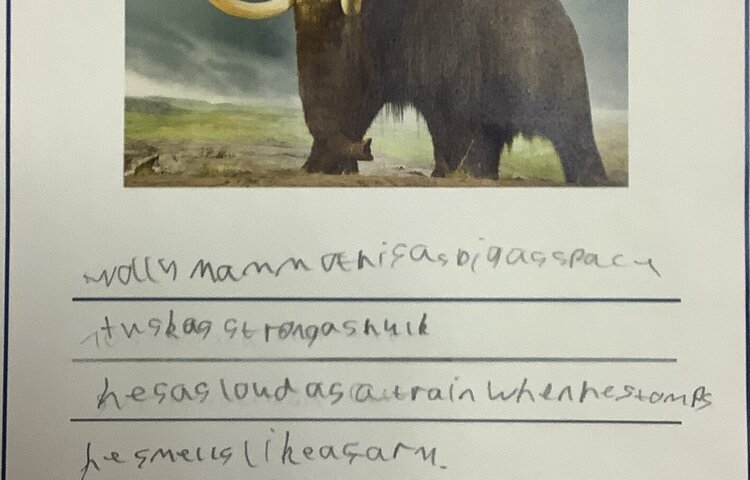 wolly mammoth is as big as space
tusk as strong as hulk
hes as loud as a train when he stomps
he smells like a